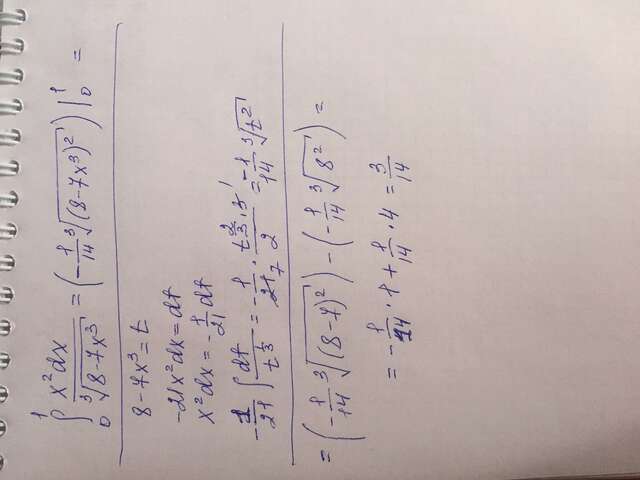 ∫₀¹ x²dx / ∛(8-7x³) = (-1/14 ∛((8-7x³)²)) |₀¹ =
8-7x³=t
-21x²dx=dt
x²dx=-1/21 dt
-1/21 ∫ dt / t^(1/3) = -1/21 · t^(2/3)·3 / 2 = -1/14 ∛(t²)
= (-1/14 ∛((8-7)²)) - (-1/14 ∛(8²)) =
= -1/14 · 1 + 1/14 · 4 = 3/14